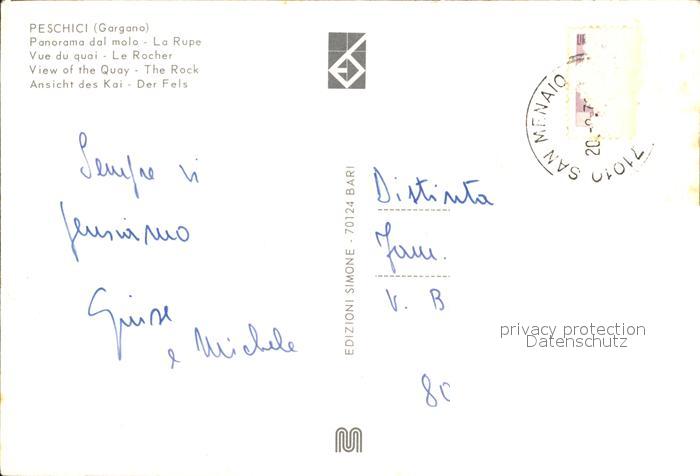 PESCHICI (Gargano)
Panorama dal molo - La Rupe
Vue du quai - Le Rocher
View of the Quay - The Rock
Ansicht des Kai - Der Fels
Sempre vi
pensiamo
e Michele
EDIZIONI SIMONE - 70124 BARI
71010 SAN MENAIO
Distinta
Fam.
V. B
80
privacy protection
Datenschutz